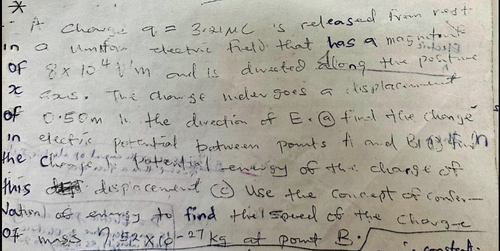 * A charge q = 3.21µC is released from rest
in a uniform electric field that has a magnitude
of 8x10⁴ V/m and is directed along the positive
x axis. The charge undergoes a displacement
of 0.50m in the direction of E. (a) find the change
in electric potential between points A and B (b) find
the change potential energy of the charge of
this displacement (c) Use the concept of conser-
vation of energy to find the speed of the charge
of mass x10⁻²⁷ kg at point B.